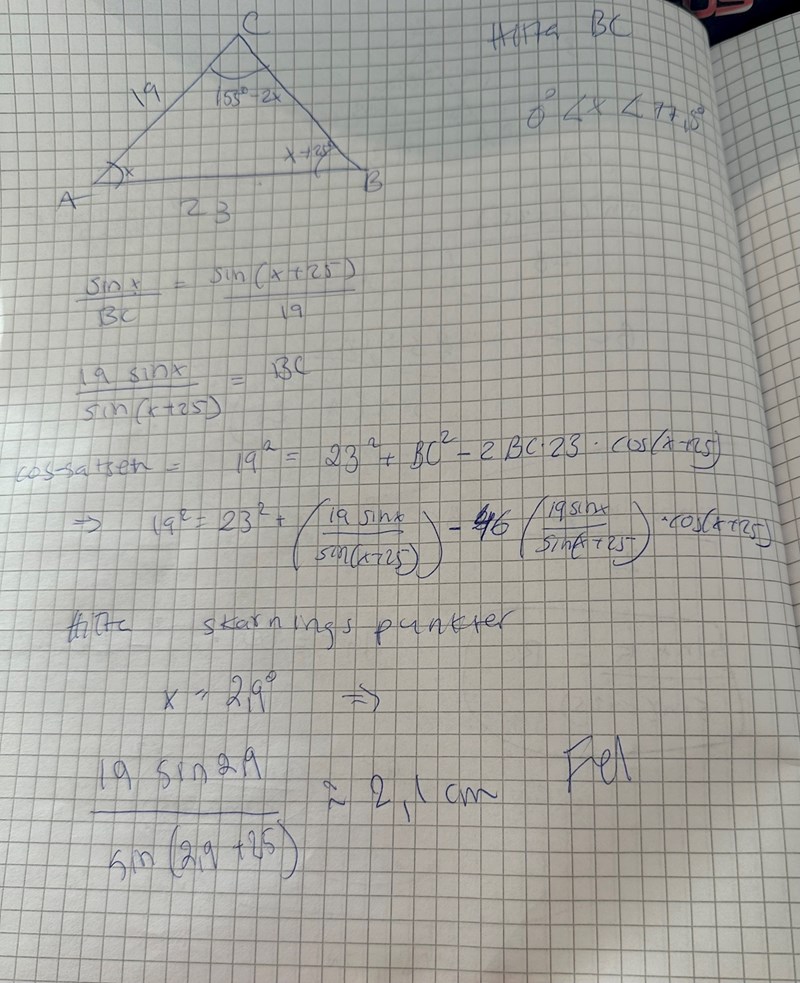 Hitta BC
C
19
155° - 2x
0° < x < 77,5°
x
x+25°
A
B
23
sin x / BC = sin(x+25) / 19
19 sin x / sin(x+25) = BC
cos-satsen = 19² = 23² + BC² - 2 BC·23 · cos(x+25)
⇒ 19² = 23² + (19 sin x / sin(x+25)) - 46 (19 sin x / sin(x+25)) · cos(x+25)
Hitta skärnings punkter
x ≈ 2,9° ⇒
19 sin 2,9 / sin(2,9 +25) ≈ 2,1 cm
Fel